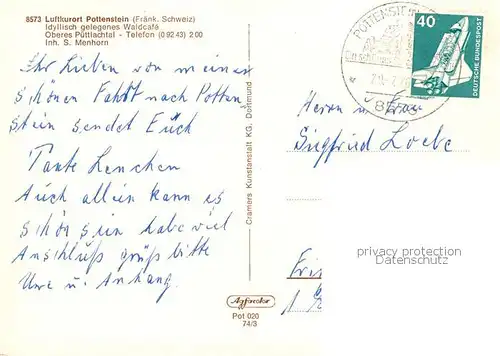 8573 Luftkurort Pottenstein (Fränk. Schweiz)
Idyllisch gelegenes Waldcafé
Oberes Püttlachtal - Telefon (0 92 43) 2 00
Inh. S. Menhorn
Ihr Lieben von meiner
schönen Fahrt nach Potten
stein sendet Euch
Tante Lenchen
Auch allein kann es
schön sein habe viel
Anschluß grüß bitte
Uwe u. Anhang.
Cramers Kunstanstalt KG, Dortmund
Agfacolor
Pot 020
74/3
POTTENSTEIN
8573
40
DEUTSCHE BUNDESPOST
Herrn u. Frau
Siegfried Loebe
privacy protection
Datenschutz